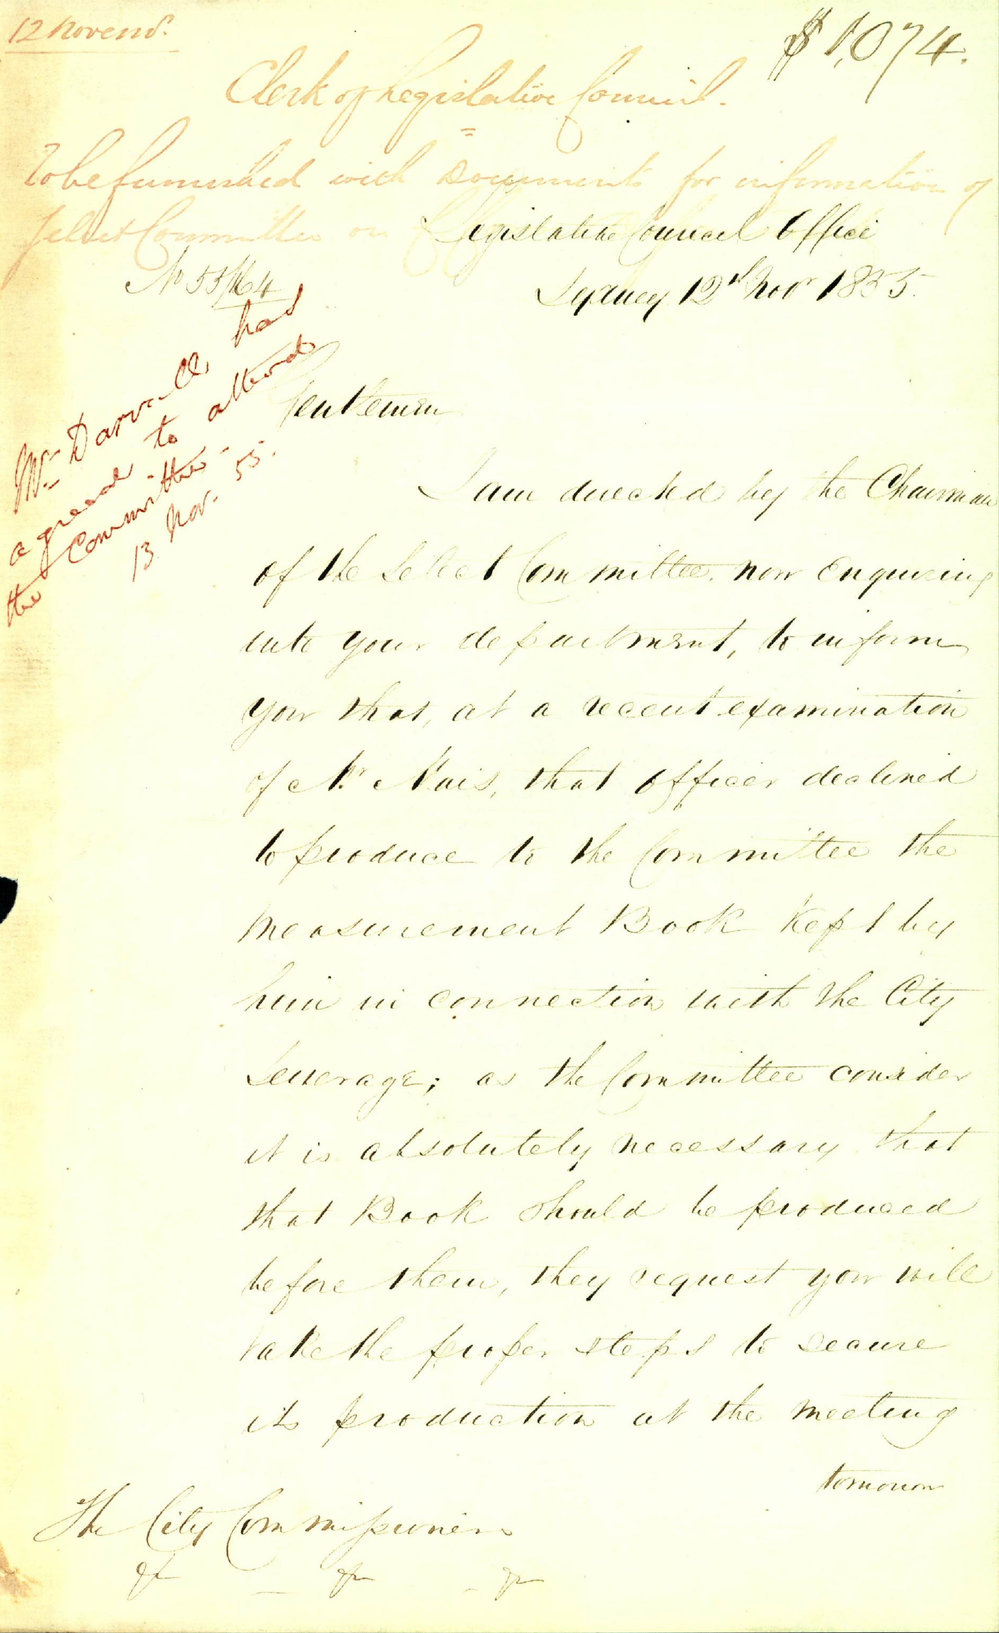 12 Novemb.
$1,074.
Clerk of Legislative Council.
To be furnished with Documents for information of
Select Committee on
Legislative Council Office
No 55/164
Sydney 12th Novr 1855.
Mr Darvall has
agreed to attend
the Committee.
13 Nov. 55.
Gentlemen
I am directed by the Chairman
of the Select Committee now enquiring
into your department, to inform
you that, at a recent examination
of Mr. Mais, that officer declined
to produce to the Committee the
Measurement Book kept by
him in connection with the City
Sewerage; as the Committee consider
it is absolutely necessary that
that Book should be produced
before them, they request you will
take the proper steps to secure
its production at the meeting
tomorrow
The City Commissioners